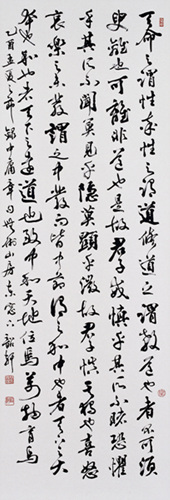 天命之謂性率性之謂道修道之謂教道也者不可須
臾離也可離非道也是故君子戒慎乎其所不睹恐懼
乎其所不聞莫見乎隱莫顯乎微故君子慎其獨也喜怒
哀樂之未發謂之中發而皆中節謂之和中也者天下之大
本也和也者天下之達道也致中和天地位焉萬物育焉
乙酉夏之節錄中庸章句於山房東窗下